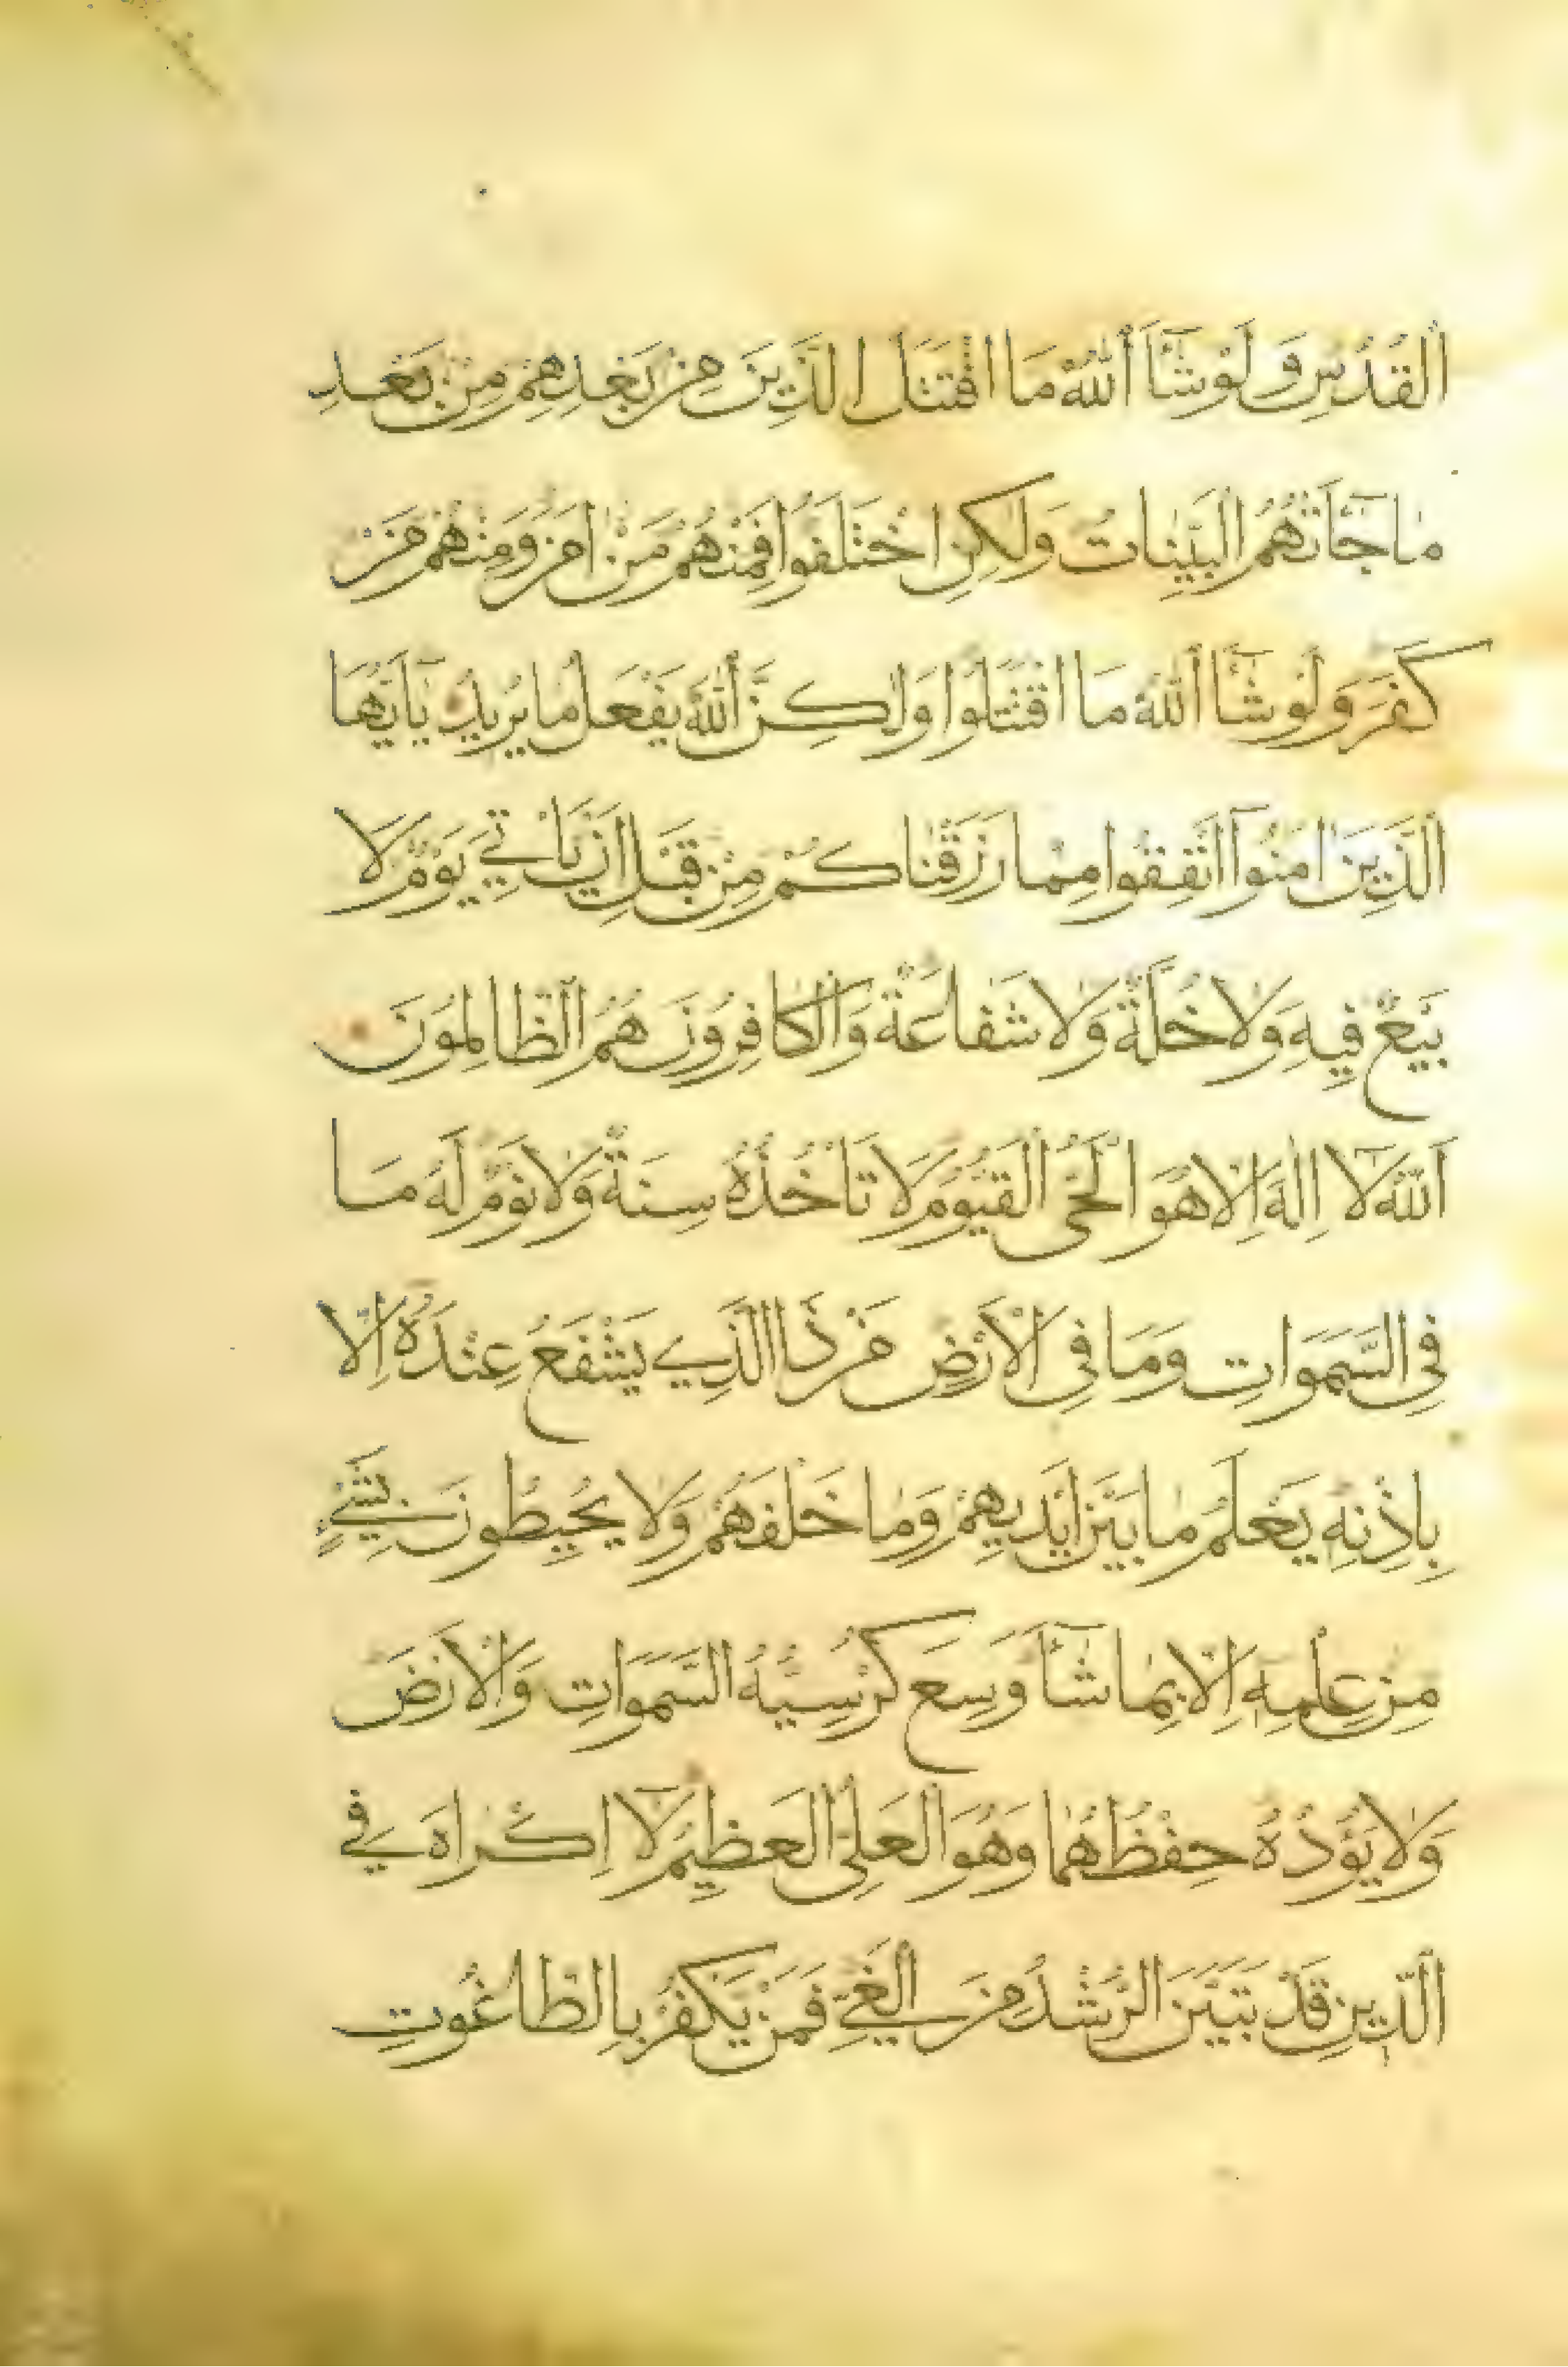 اَلْقُدُسِ وَلَوْ شَآءَ اَللّٰهُ مَا اقْتَتَلَ الَّذِينَ مِنْ بَعْدِهِمْ مِنْ بَعْدِ
مَا جَآءَتْهُمُ الْبَيِّنَاتُ وَلٰكِنِ اخْتَلَفُوا فَمِنْهُمْ مَنْ اٰمَنَ وَمِنْهُمْ مَنْ
كَفَرَ وَلَوْ شَآءَ اَللّٰهُ مَا اقْتَتَلُوا وَلٰكِنَّ اَللّٰهَ يَفْعَلُ مَا يُرِيدُ يَٓا اَيُّهَا
الَّذِينَ اٰمَنُوٓا اَنْفِقُوا مِمَّا رَزَقْنَاكُمْ مِنْ قَبْلِ اَنْ يَأْتِيَ يَوْمٌ لَا
بَيْعٌ فِيهِ وَلَا خُلَّةٌ وَلَا شَفَاعَةٌ وَالْكَافِرُونَ هُمُ الظَّالِمُونَ
اَللّٰهُ لَٓا اِلٰهَ اِلَّا هُوَ الْحَيُّ الْقَيُّومُ لَا تَأْخُذُهُ سِنَةٌ وَلَا نَوْمٌ لَهُ مَا
فِي السَّمَوَاتِ وَمَا فِي الْاَرْضِ مَنْ ذَا الَّذِي يَشْفَعُ عِنْدَهُٓ اِلَّا
بِاِذْنِهِ يَعْلَمُ مَا بَيْنَ اَيْدِيهِمْ وَمَا خَلْفَهُمْ وَلَا يُحِيطُونَ بِشَيْءٍ
مِنْ عِلْمِهِٓ اِلَّا بِمَا شَآءَ وَسِعَ كُرْسِيُّهُ السَّمَوَاتِ وَالْاَرْضَ
وَلَا يَؤُدُهُ حِفْظُهُمَا وَهُوَ الْعَلِيُّ الْعَظِيمُ لَٓا اِكْرَاهَ فِي
الدِّينِ قَدْ تَبَيَّنَ الرُّشْدُ مِنَ الْغَيِّ فَمَنْ يَكْفُرْ بِالطَّاغُوتِ